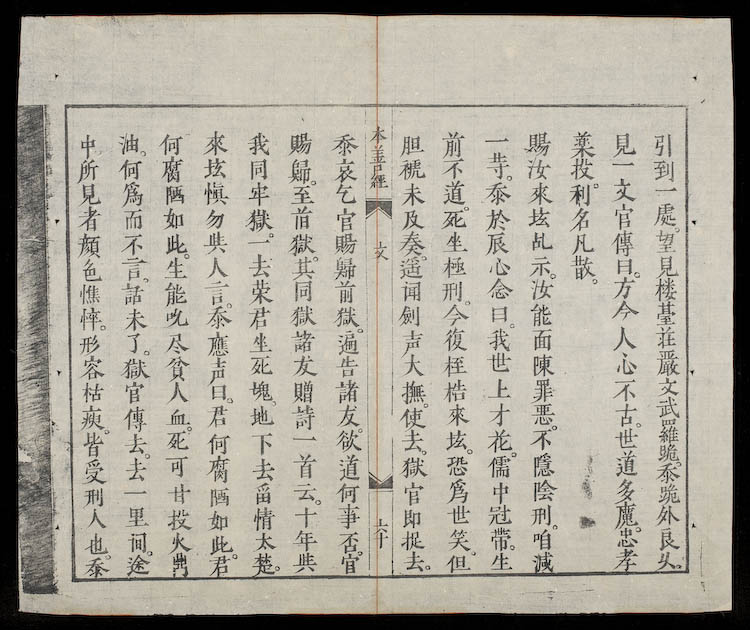 引到一處。望見楼䑓莊嚴。文武羅跪。忝跪外良乆。
見一文官傳曰。方今人心不古。世道多魔。忠孝
業投。利名凡散。
賜汝來垓乩示。汝能面陳罪惡。不隱陰刑。咱減
一等。忝於辰心念曰。我世上才花。儒中冠帶。生
前不道。死坐極刑。今復桎梏來垓。恐為世笑。但
胆褫未及奏。遥闻劍声大撫。使去。獄官即捉去。
本善經
十六
忝哀乞官賜歸前獄。遍告諸友。欲道何事否。官
賜歸。至前獄。其同獄諸友贈詩一首云。十年㒷
我同牢獄。一去荣君坐死塊。地下去畱情太楚。
來垓慎勿㒷人言。忝應声曰。君何腐陋如此。君
何腐陋如此。生能吮尽貧人血。死可甘投火鬧
油。何為而不言。話未了。獄官傳去。去一里间。途
中所見者顔色憔悴。形容枯瘐。皆受刑人也。忝